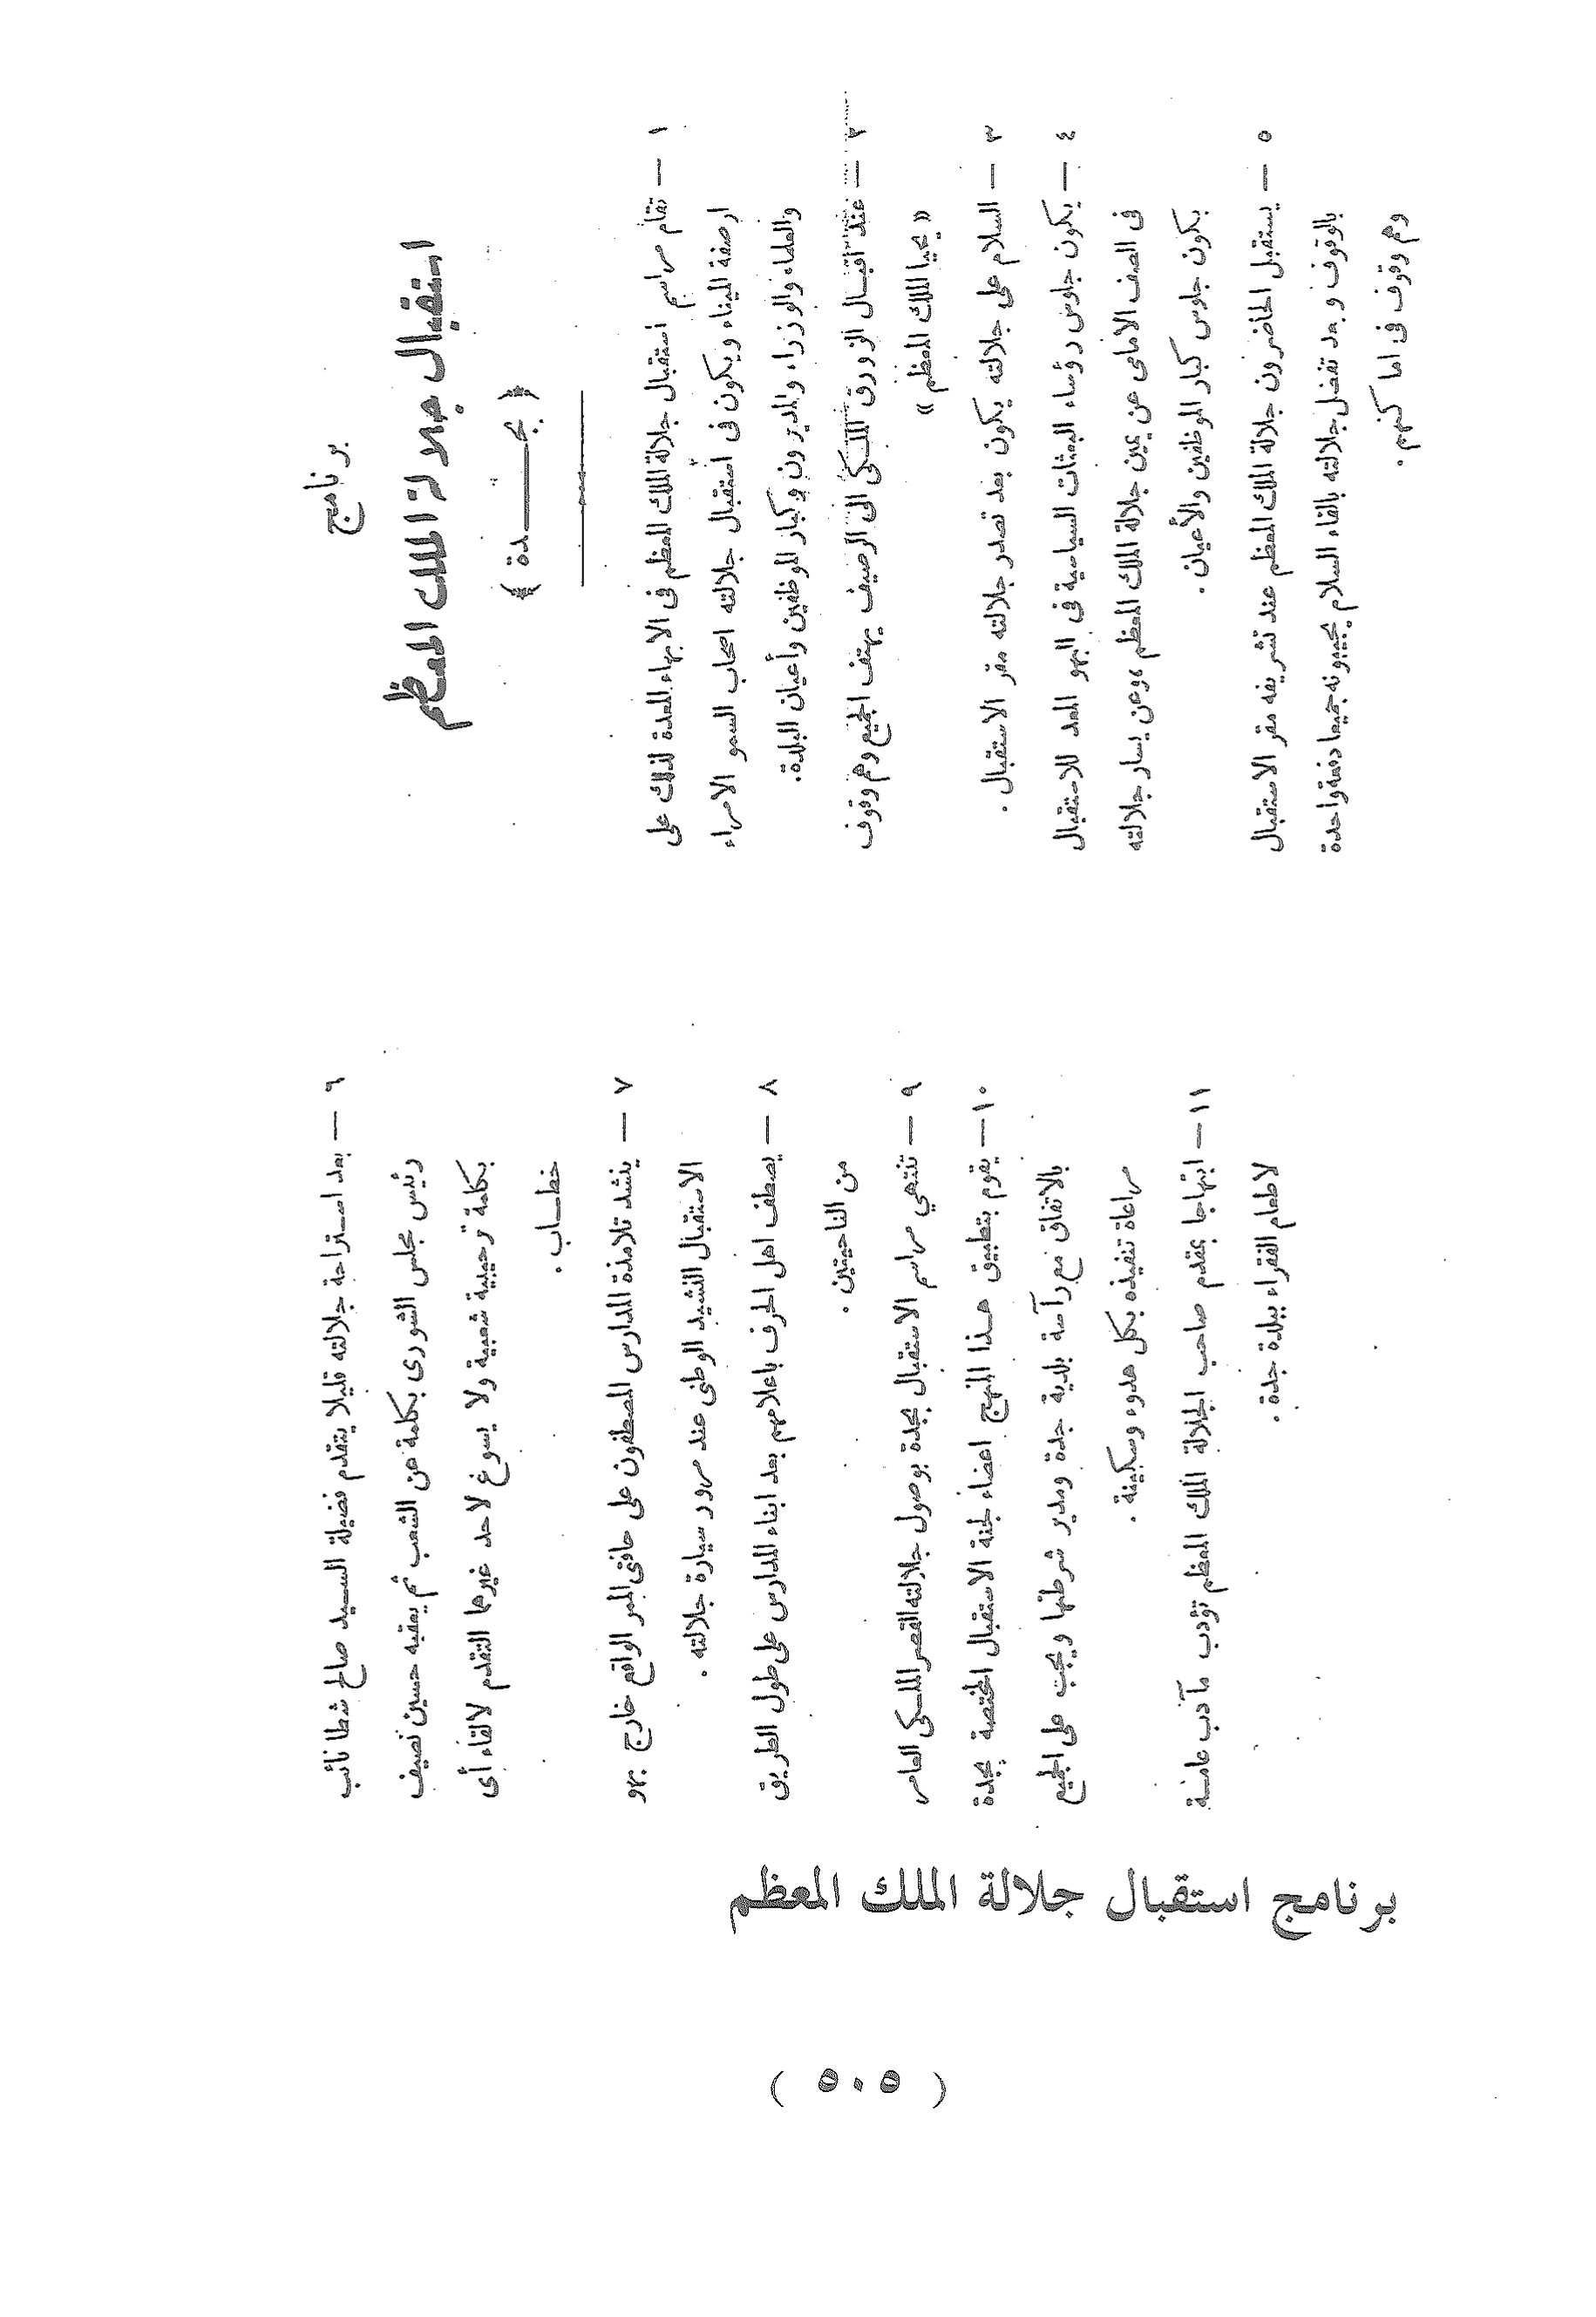 برنامج
استقبال جلالة الملك المعظم
﴿ بجـــــدة ﴾
١ — تقام مراسم استقبال جلالة الملك المعظم فى الابهاء المعدة لذلك على
ارصفة الميناء ويكون فى استقبال جلالته اصحاب السمو الامراء
والعلماء والوزراء والمديرون وكبار الموظفين وأعيان البلدة.
٢ — عند اقبـال الزورق الملـكى الى الرصيف يهتف الجميع وهم وقوف
« يحيا الملك المعظم »
٣ — السلام على جلالته يكون بعد تصدر جلالته مقر الاستقبال .
٤ — يكون جلوس رؤساء البعثات السياسية فى البهو المعد للاستقبال
فى الصف الامامى عن يمين جلالة الملك المعظم ، وعن يسار جلالته
يكون جلوس كبار الموظفين والأعيان .
٥ — يستقبل الحاضرون جلالة الملك المعظم عند تشريفه مقر الاستقبال
بالوقوف وبعد تفضل جلالته بالقاء السلام يجيبونه جميعا دفعة واحدة
وهم وقوف فى اماكنهم .
٦ — بعد استراحة جلالته قليلا يتقدم فضيلة السـيد صالح شطا نائب
رئيس مجلس الشورى بكلمة عن الشعب ثم يعقبه حسين نصيف
بكلمة ترحيبية شعبية ولا يسوغ لاحد غيرهما التقدم لالقاء أى
خطـاب .
٧ — ينشد تلامذة المدارس المصطفون على حافتى الممر الواقع خارج البهو
الاستقبال النشيد الوطنى عند مرور سيارة جلالته .
٨ — يصطف اهل الحرف باعلامهم بعد ابناء المدارس على طول الطريق
من الناحيتين .
٩ — تنتهي مراسم الاستقبال بجدة بوصول جلالته القصر الملـكى العامر
١٠ — يقوم بتطبيق هـذا المنهج اعضاء لجنة الاستقبال المختصة بجدة
بالاتفاق مع رآسة بلدية جدة ومدير شرطتها ويجب على الجميع
مراعاة تنفيذه بكل هدوء وسكينة .
١١ — ابتهاجا بمقدم صاحب الجلالة الملك المعظم تؤدب مآدب عامـة
لاطعام الفقراء ببلدة جدة .
برنامج استقبال جلالة الملك المعظم
( ٥٠٥ )